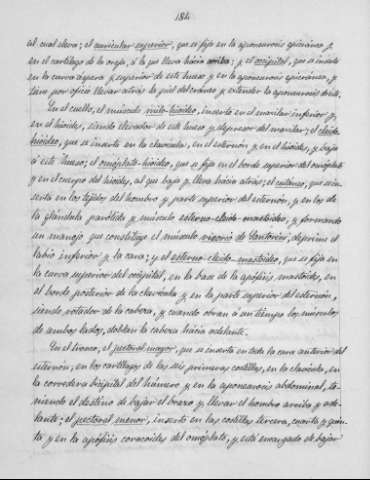 184
al cual eleva; el auricular superior, que se fija en la aponeurosis epicránea y
en el cartílago de la oreja, á la que lleva hácia arriba; y el occipital, que se inserta
en la curva áspera y superior de este hueso y en la aponeurosis epicránea, y
tiene por oficio llevar atrás la piel del cráneo y extender la aponeurosis
En el cuello, el músculo milo-hioideo, inserto en el maxilar inferior y
en el hioides, siendo elevador de este hueso y depresor del maxilar; el cleido
hioideo, que se inserta en la clavícula, en el esternón y en el hioides, y baja
á este hueso; el omóplato-hioideo, que se fija en el borde superior del omóplato
y en el cuerpo del hioides, al que baja y lleva hácia atrás; el cutáneo, que se in-
serta en los tejidos del hombro y parte superior del esternón, y en los de
la glándula parótida y músculo esterno-cleido-mastoideo, y formando
un manojo que constituye el músculo risorio de Santorini, deprime el
labio inferior y la cara; y el esterno-cleido-mastoideo, que se fija en la
curva superior del occipital, en la base de la apófisis mastoides, en
el borde posterior de la clavícula y en la parte superior del esternón,
siendo rotador de la cabeza, y cuando obran á un tiempo los músculos
de ambos lados, doblan la cabeza hácia adelante.
En el tronco, el pectoral mayor, que se inserta en toda la cara anterior del
esternón, en los cartílagos de las seis primeras costillas, en la clavícula, en
la corredera bicipital del húmero y en la aponeurosis abdominal, te-
niendo el destino de bajar el brazo y llevar el hombro arriba y ade-
lante; el pectoral menor, inserto en las costillas tercera, cuarta y quin-
ta y en la apófisis coracoides del omóplato, y está encargado de bajar